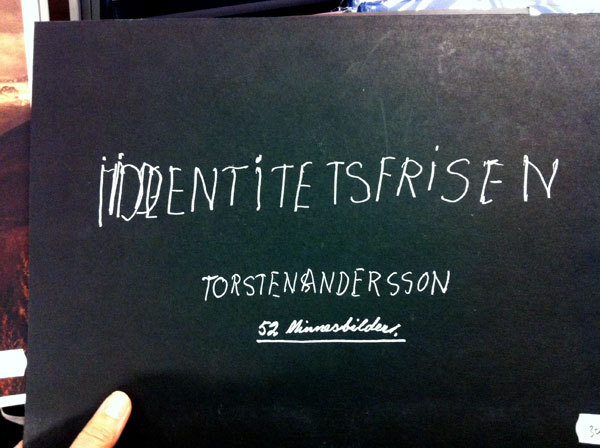 iDENTITETSFRiSEN
TORSTEN ANDERSSON
52 Minnesbilder.